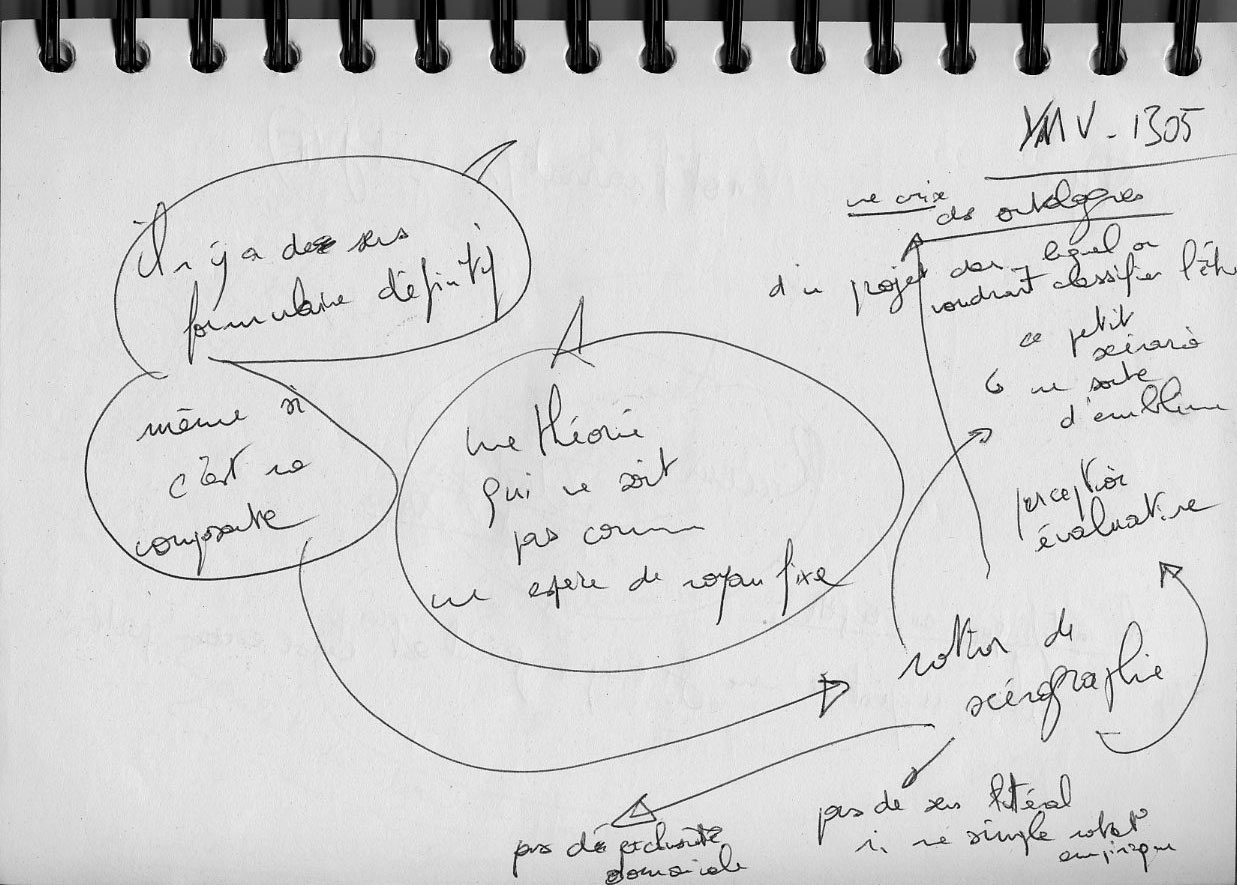 YMV - 1305
une crise
des ontologies
d'un projet dans lequel on
voudrait classifier l'être
ce petit
scénario
une sorte
d'emblème
perception
évaluative
il n'y a de sens
formulaire définitif
même si
c'est une
composante
une théorie
qui ne soit
pas comme
une espèce de noyau fixe
notion de
scénographie
pas de sens littéral
ni une simple
empirique
pas d'exclusivité
domaniale